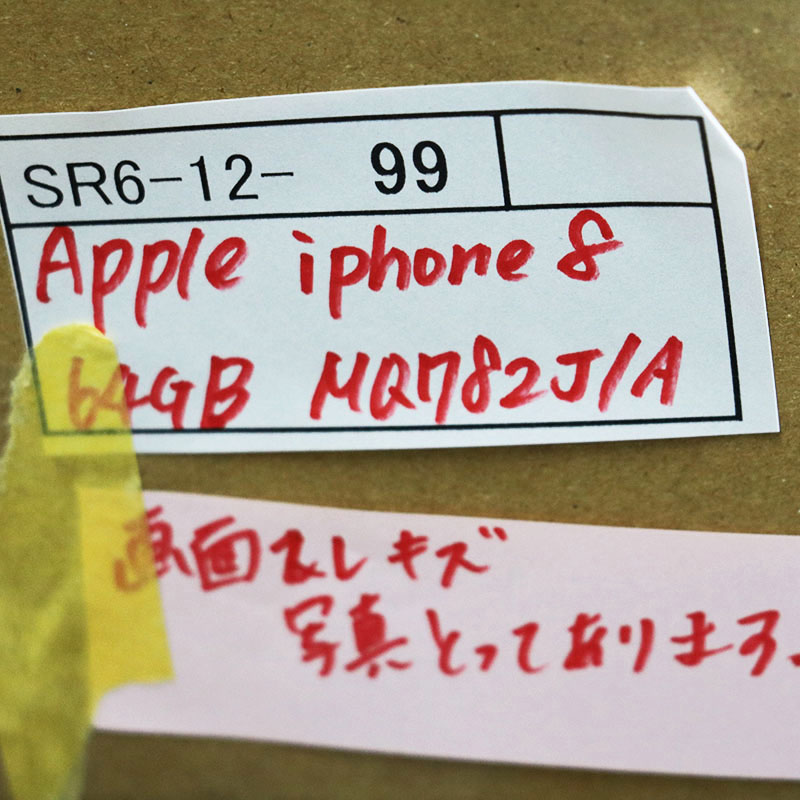 SR6-12- 99
Apple iphone 8
64GB MQ782J/A
画面スレキズ
写真とってあります。